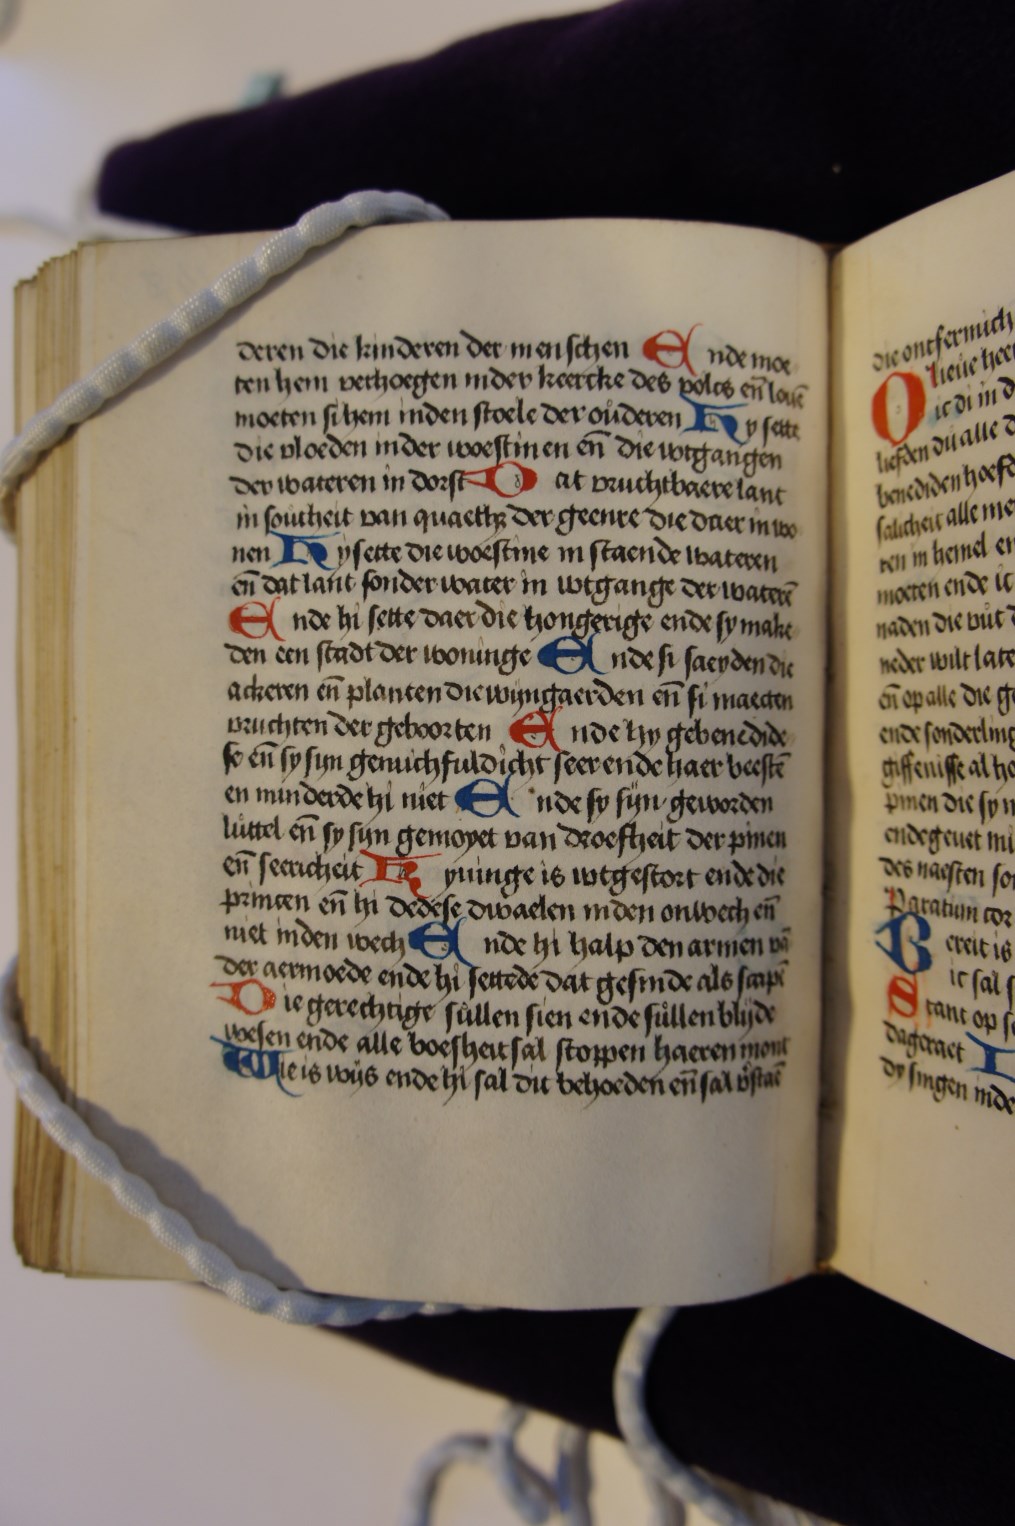 deren die kinderen der menschen Ende moe
ten hem verhoegen inder keercke des volcs en̄ louē
moeten si hem inden stoele der ouderen Hy sette
die vloeden inder woestinen en̄ die wtgangen
der wateren in dorst Dat vruchtbaere lant
in southeit van quaetheiz der geenre die daer in wo
nen Hy sette die woestine in staende wateren
en̄ dat lant sonder water in wtgange der waterē
Ende hi sette daer die hongerige ende sy make
den een stadt der woninge Ende si saeyden die
ackeren en̄ planten die wijngaerden en̄ si maecten
vruchten der geboorten Ende hy gebenedide
se en̄ sy sijn genichfuldicht seer ende haer beestē
en minderde hi niet Ende sy sijn geworden
luttel en̄ sy sijn gemoyet van droefheit der pinen
en̄ seericheit Kyuinge is wtgestort ende die
princen en̄ hi dedese dwaelen inden onwech en̄
niet inden wech Ende hi halp den armen vā
der aermoede ende hi settede dat gesinde als scapē
Die gerechtige sullen sien ende sullen blijde
wesen ende alle boesheit sal stoppen haeren mont
Wie is wijs ende hi sal dit behoeden en̄ sal v̄staē
die ontfermich
O lieue heer
ic di in d
liefden du alle d
benediden hoefd
salicheit alle me
ren in hemel en
moeten ende ic
naden die vut d
neder wilt late
en̄ op alle die g
ende sonderling
giffenisse al he
pinen die sy n
ende geuet mi
des naesten so
Paratum cor
Bereit is
ic sal s
Stant op s
dageraet I
dy singen inde